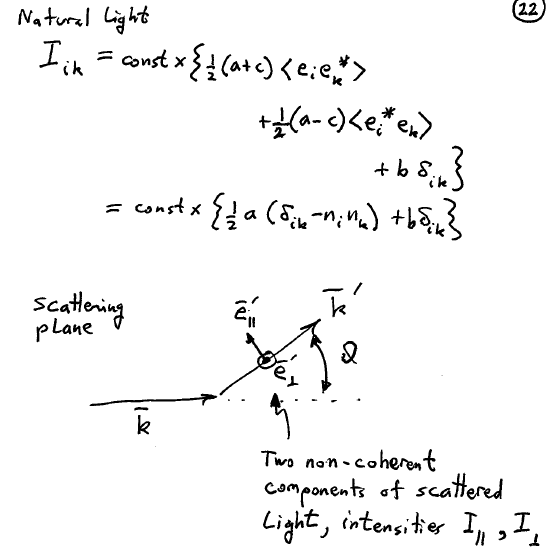 22
Natural Light
I_{ik} = const x {½(a+c) <e_i e_k^*>
+½(a-c) <e_i^* e_k>
+ b δ_{ik}}
= const x {½ a (δ_{ik} - n_i n_k) + b δ_{ik}}
scattering
plane
e̅'_{||}
k̅'
e̅'_⊥
ϑ
k̅
Two non-coherent
components of scattered
Light, intensities I_{||}, I_⊥